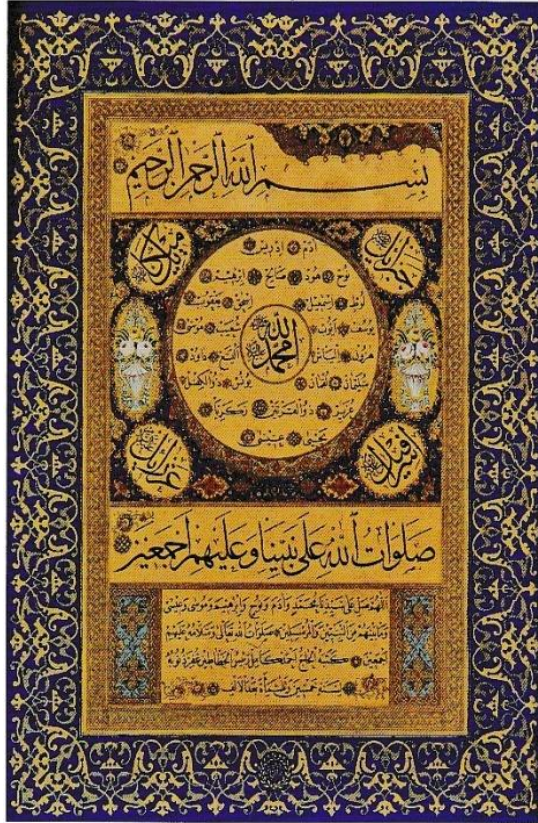 بِسْمِ ٱللّٰهِ ٱلرَّحْمٰنِ ٱلرَّحِيمِ
جبرائيل
ميكائيل
آدم ادريس
نوح هود صالح ابرهيم
لوط اسمعيل اسحق يعقوب
يوسف ايوب شعيب موسى
الله
محمد
هرون الياس اليسع داود
سليمان لقمان يونس ذو الكفل
عزير ذو القرنين زكريا
يحيى عيسى
اسرافيل
عزرائيل
صلوات ٱلله على نبينا وعليهم اجمعين
اللهم صل على سيدنا محمد وآدم ونوح وابرهيم وموسى وعيسى
وما بينهم من النبيين والمرسلين صلوات الله تعالى وسلامه عليهم
اجمعين كتبه الحاج احمد كامل رئيس الخطاطين غفر ذنوبه
لسنة خمسين وثلثمأة بعد الالف